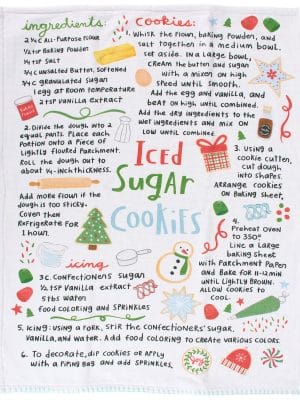 ingredients:
2 ¼ c All-Purpose Flour
½ tsp Baking Powder
¼ tsp Salt
¾ c unsalted Butter, Softened
¾ c granulated sugar
1 egg at room temperature
2 tsp Vanilla extract
Cookies:
1. Whisk the flour, baking powder, and
salt together in a medium bowl.
Set aside. In a large bowl,
cream the butter and sugar
with a mixer on high
speed until smooth.
Add the egg and vanilla, and
beat on high until combined.
Add the dry ingredients to the
wet ingredients and mix on
low until combined
2. Divide the dough into 2
equal parts. Place each
portion onto a piece of
lightly floured parchment.
Roll the dough out to
about ¼-inch thickness.
Add more flour if the
dough is too sticky.
Cover then
refrigerate for
1 hour.
Iced
Sugar
Cookies
3. Using a
cookie cutter,
cut dough
into shapes.
Arrange cookies
on baking sheet.
4.
Preheat oven
to 350°
Line a large
baking sheet
with parchment paper
and bake for 11-12 min
until lightly brown.
Allow cookies to
cool.
icing
3 c. Confectioners sugar
½ tsp Vanilla extract
5 tbs water
Food coloring and sprinkles
5. Icing: Using a fork, stir the confectioners' sugar,
vanilla, and water. Add food coloring to create various colors.
6. To decorate, dip cookies or apply
with a piping bag and add sprinkles.